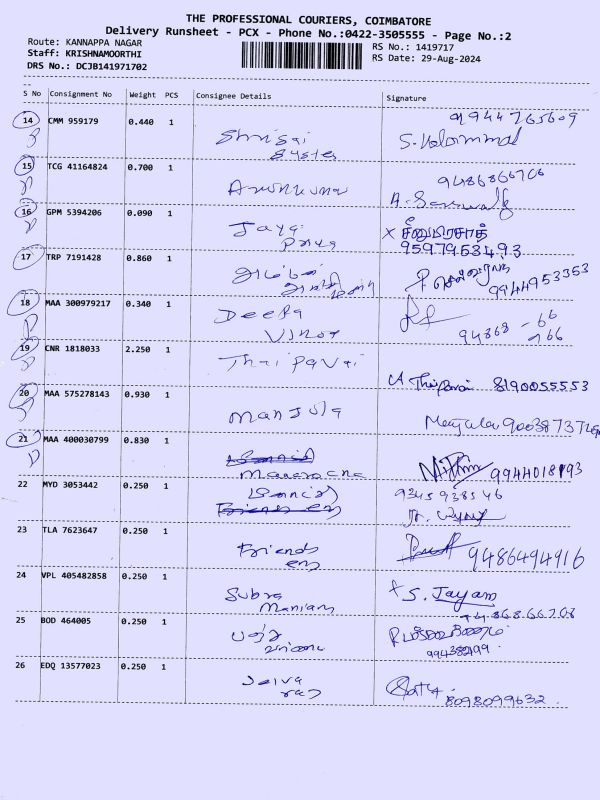 THE PROFESSIONAL COURIERS, COIMBATORE
Delivery Runsheet - PCX - Phone No.:0422-3505555 - Page No.:2
Route: KANNAPPA NAGAR
Staff: KRISHNAMOORTHI
DRS No.: DCJB141971702
RS No.: 1419717
RS Date: 29-Aug-2024
S No Consignment No Weight PCS Consignee Details Signature
14 CMM 959179 0.440 1
9944765609
15 TCG 41164824 0.700 1 Arunkumar
9486866706
16 GPM 5394206 0.090 1 Jaya
Priya
9597953493
17 TRP 7191428 0.860 1
9944953353
18 MAA 300979217 0.340 1 Deepa
Vinoz
94868 - 66
766
19 CNR 1818033 2.250 1 Thaipavai
Thaipavai 8190055553
20 MAA 575278143 0.930 1 Manjula
Manjula
21 MAA 400030799 0.830 1
Nithin 9944018193
22 MYD 3053442 0.250 1
Friends ens
9345938546
23 TLA 7623647 0.250 1 Friends
ens
9486494916
24 VPL 405482858 0.250 1 Subra
Maniam
x S. Jayam
25 BOD 464005 0.250 1
26 EDQ 13577023 0.250 1 Selva
raj
8098099632